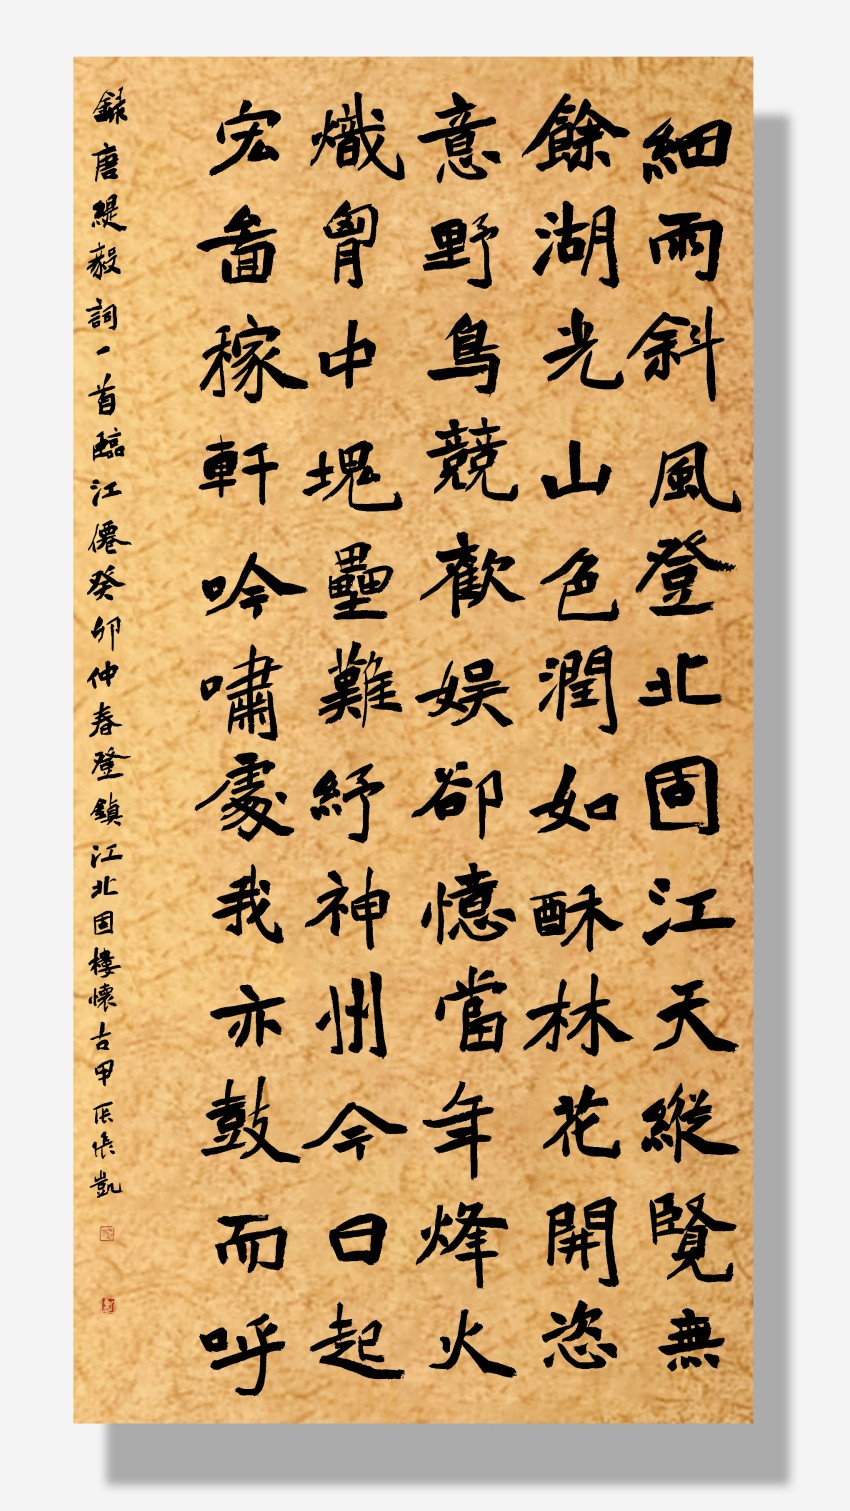 細雨斜風登北固江天縱覽無
餘湖光山色潤如酥林花開恣
意野鳥競歡娱卻憶當年烽火
熾胷中塊壘難紓神州今日起
宏啚稼軒吟嘯處我亦鼓而呼
録唐緹毅詞一首臨江僊癸卯仲春登鎮江北固樓懷古甲辰張凱